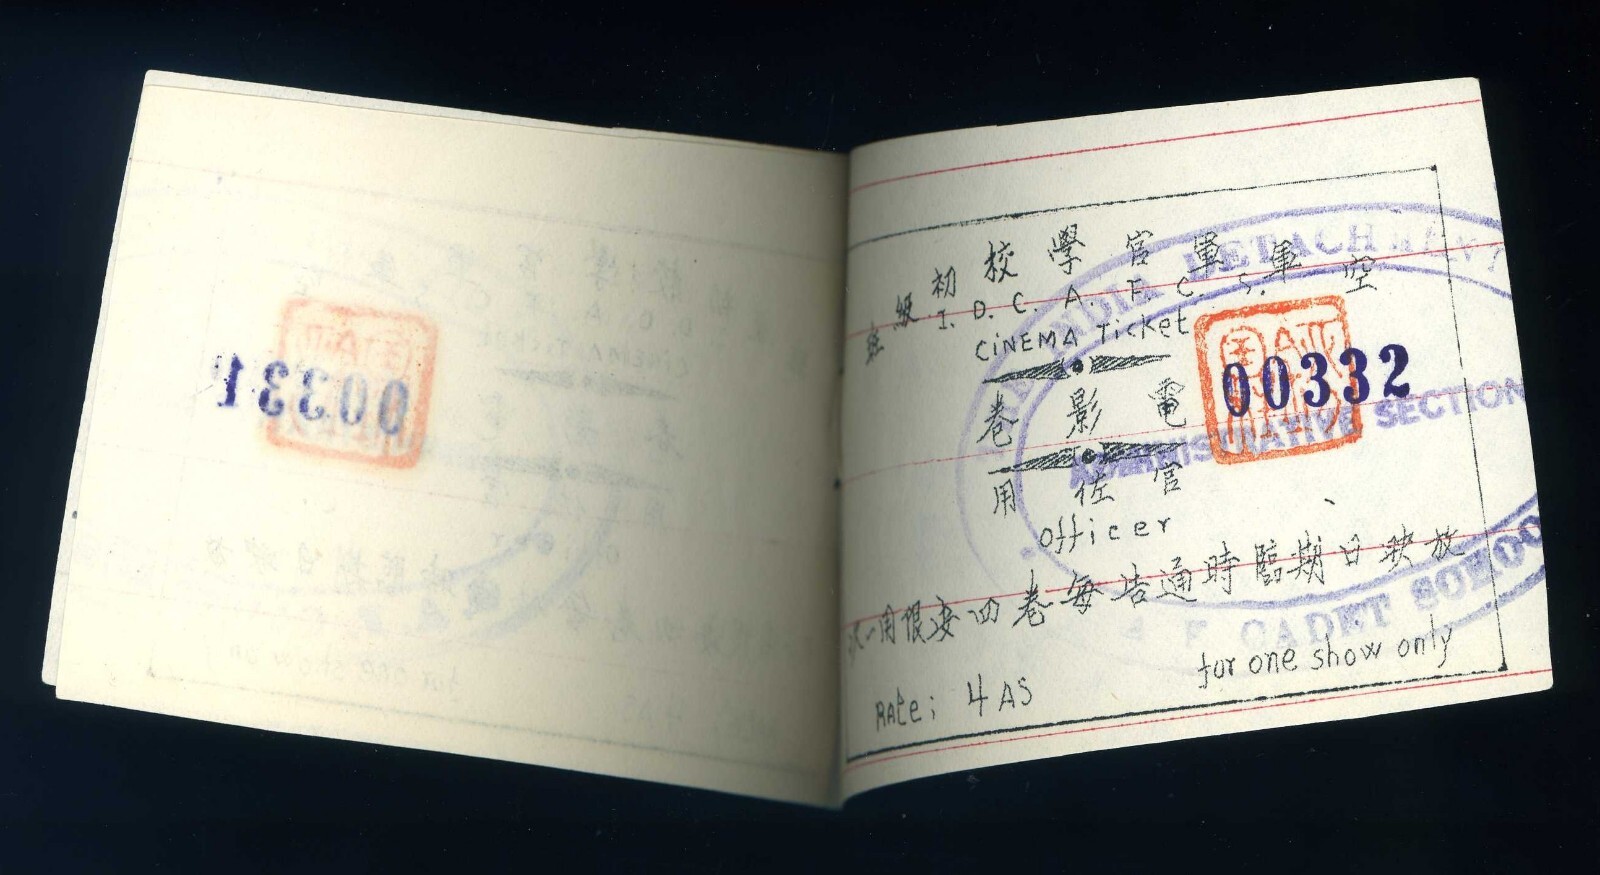 空軍軍官學校初級班
I. D. C. A. F. C. S.
CiNEMA Ticket
00332
電影卷
官佐用
officer
放映日期臨時通告每卷四安限用一次
for one show only
Rate; 4 AS
INDIA DETACHMENT
ADMINISTRATIVE SECTION
F CADET SCHOO
00331